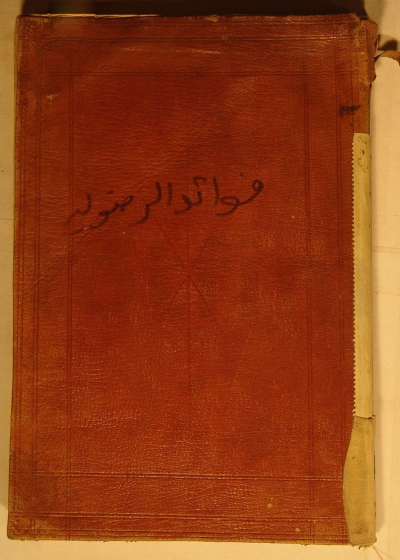 فوائد الرضویه